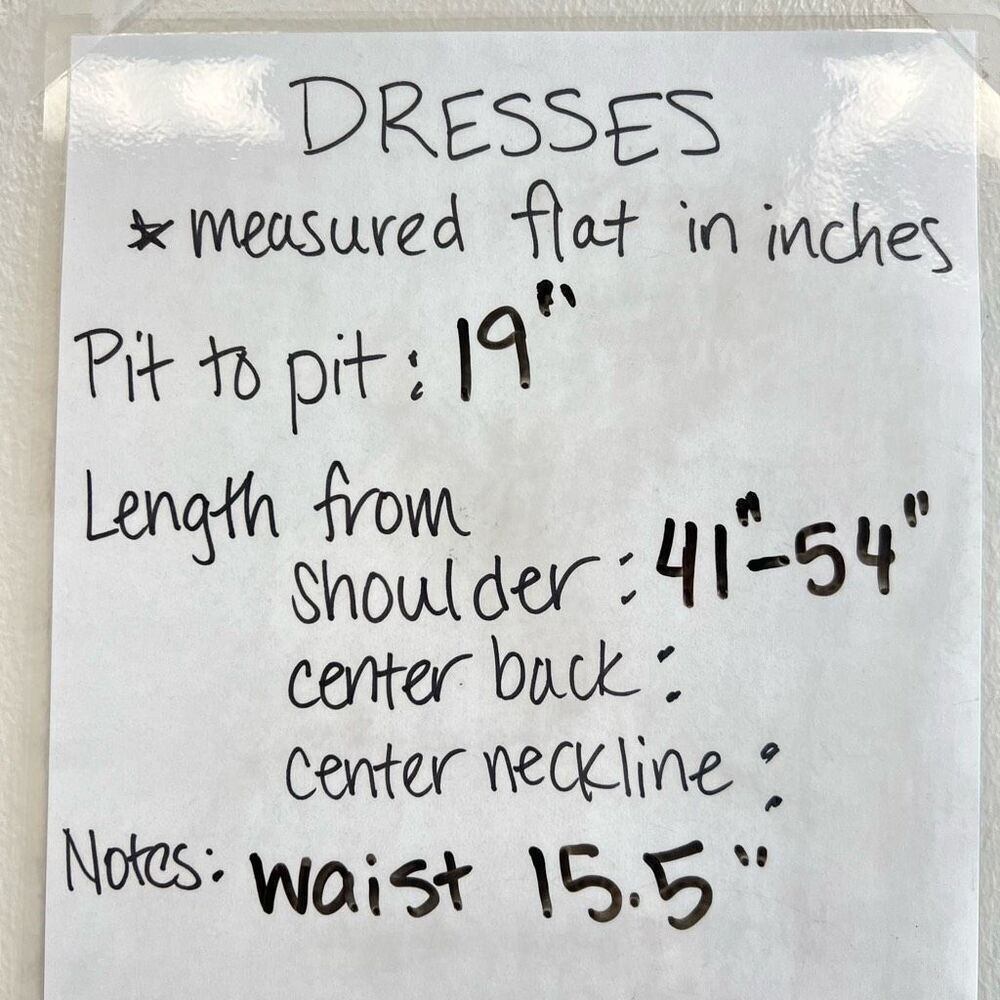 DRESSES
* measured flat in inches
Pit to pit: 19"
Length from
shoulder: 41"-54"
center back:
center neckline:
Notes: waist 15.5"